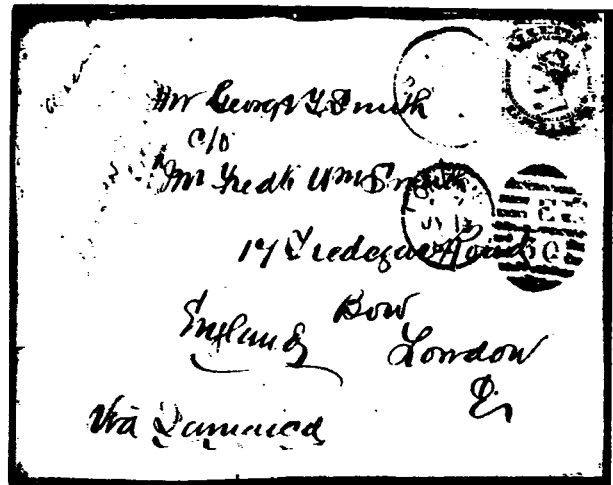 Mr George Y. Smith
C/O
Mr Fredk Wm Smith
17 Tredegar Road
Bow
England
London
E.
Via Jamaica